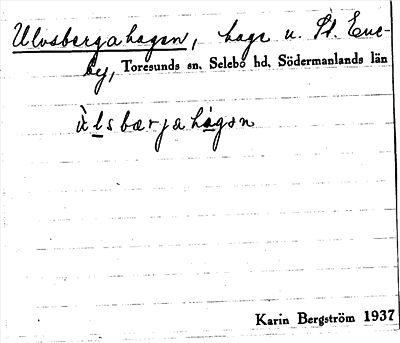 Ulvsbergahagen, hage u. St. Ene-
by, Toresunds sn. Selebo hd. Södermanlands län
ùlsbærjahàgən
Karin Bergström 1937